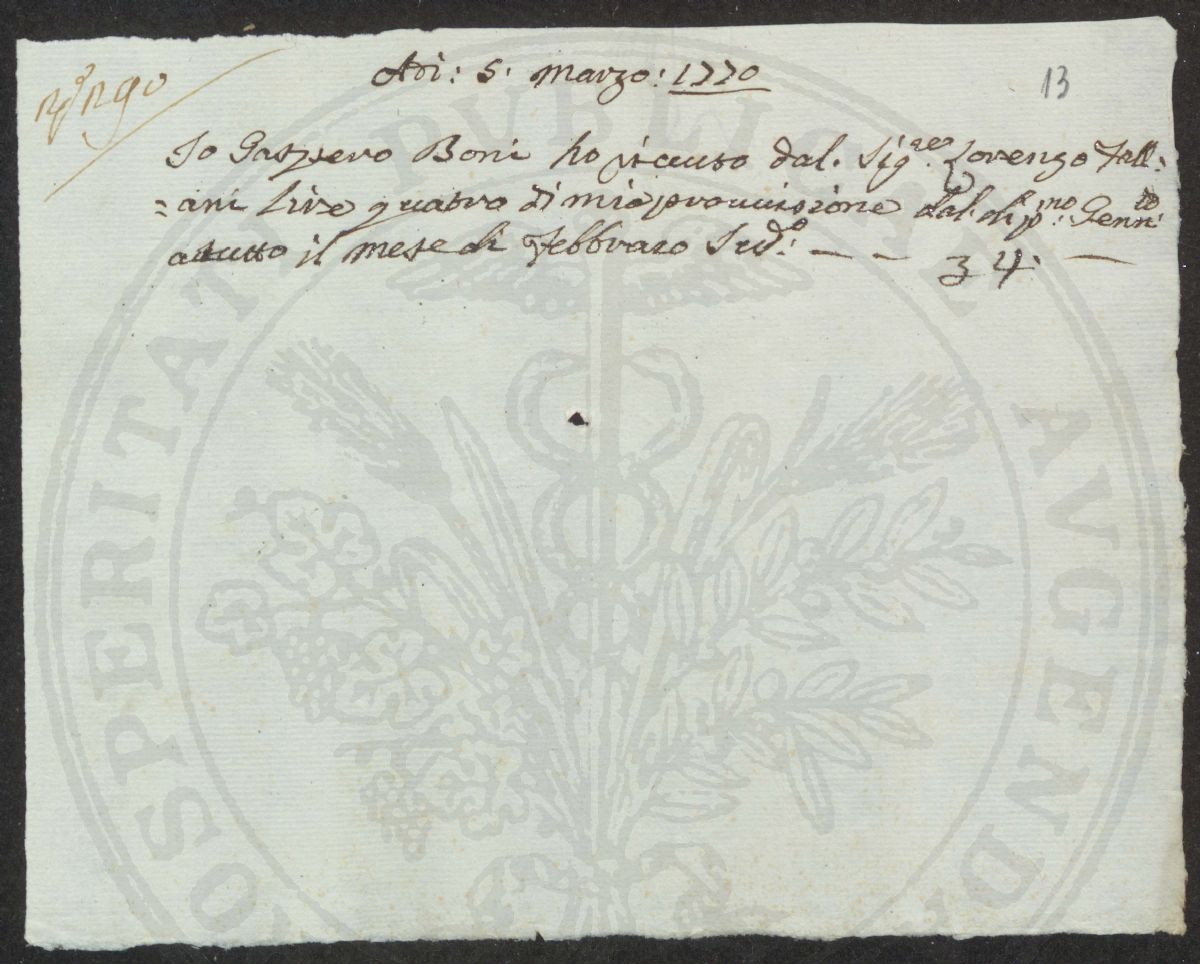 Adi: 5: Marzo: 1770
13
Io Gaspero Boni ho riceuto dal. Sig.re Lorenzo Fall:
=ani Lire quatro di mia prouuisione dal. di p.mo Genn:
atutto il mese di Febbraro Sud.o — — 34. —
PROSPERITATI PVBLICAE AVGENDAE